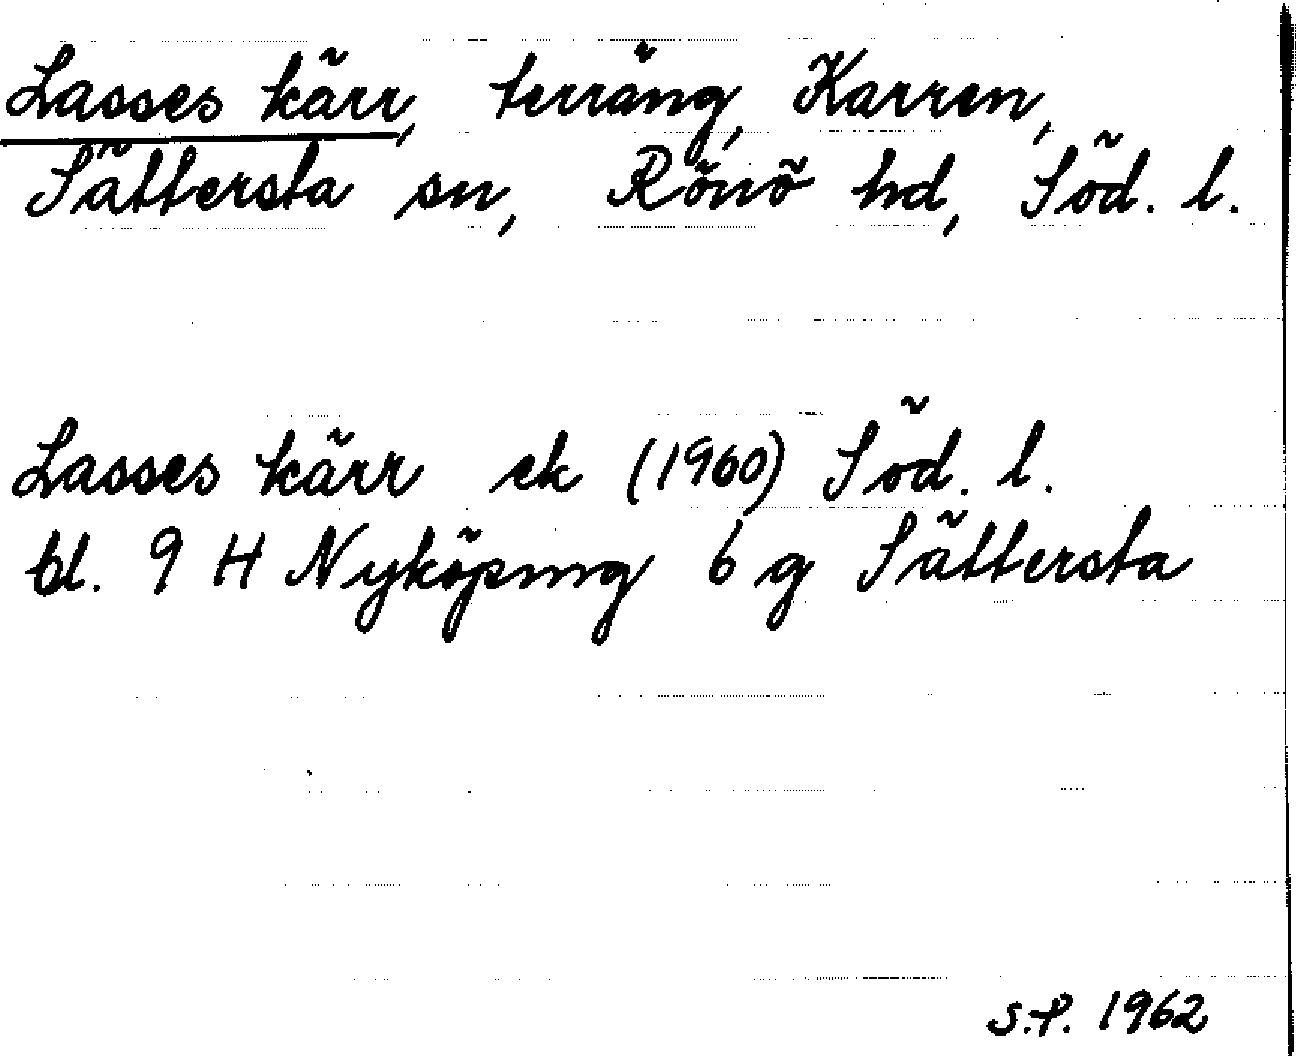 Lasses kärr, terräng, Karren,
Sättersta sn, Rönö hd, Söd. l.
Lasses kärr ek (1960) Söd. l.
bl. 9 H Nyköping 6 g Sättersta
S.P. 1962